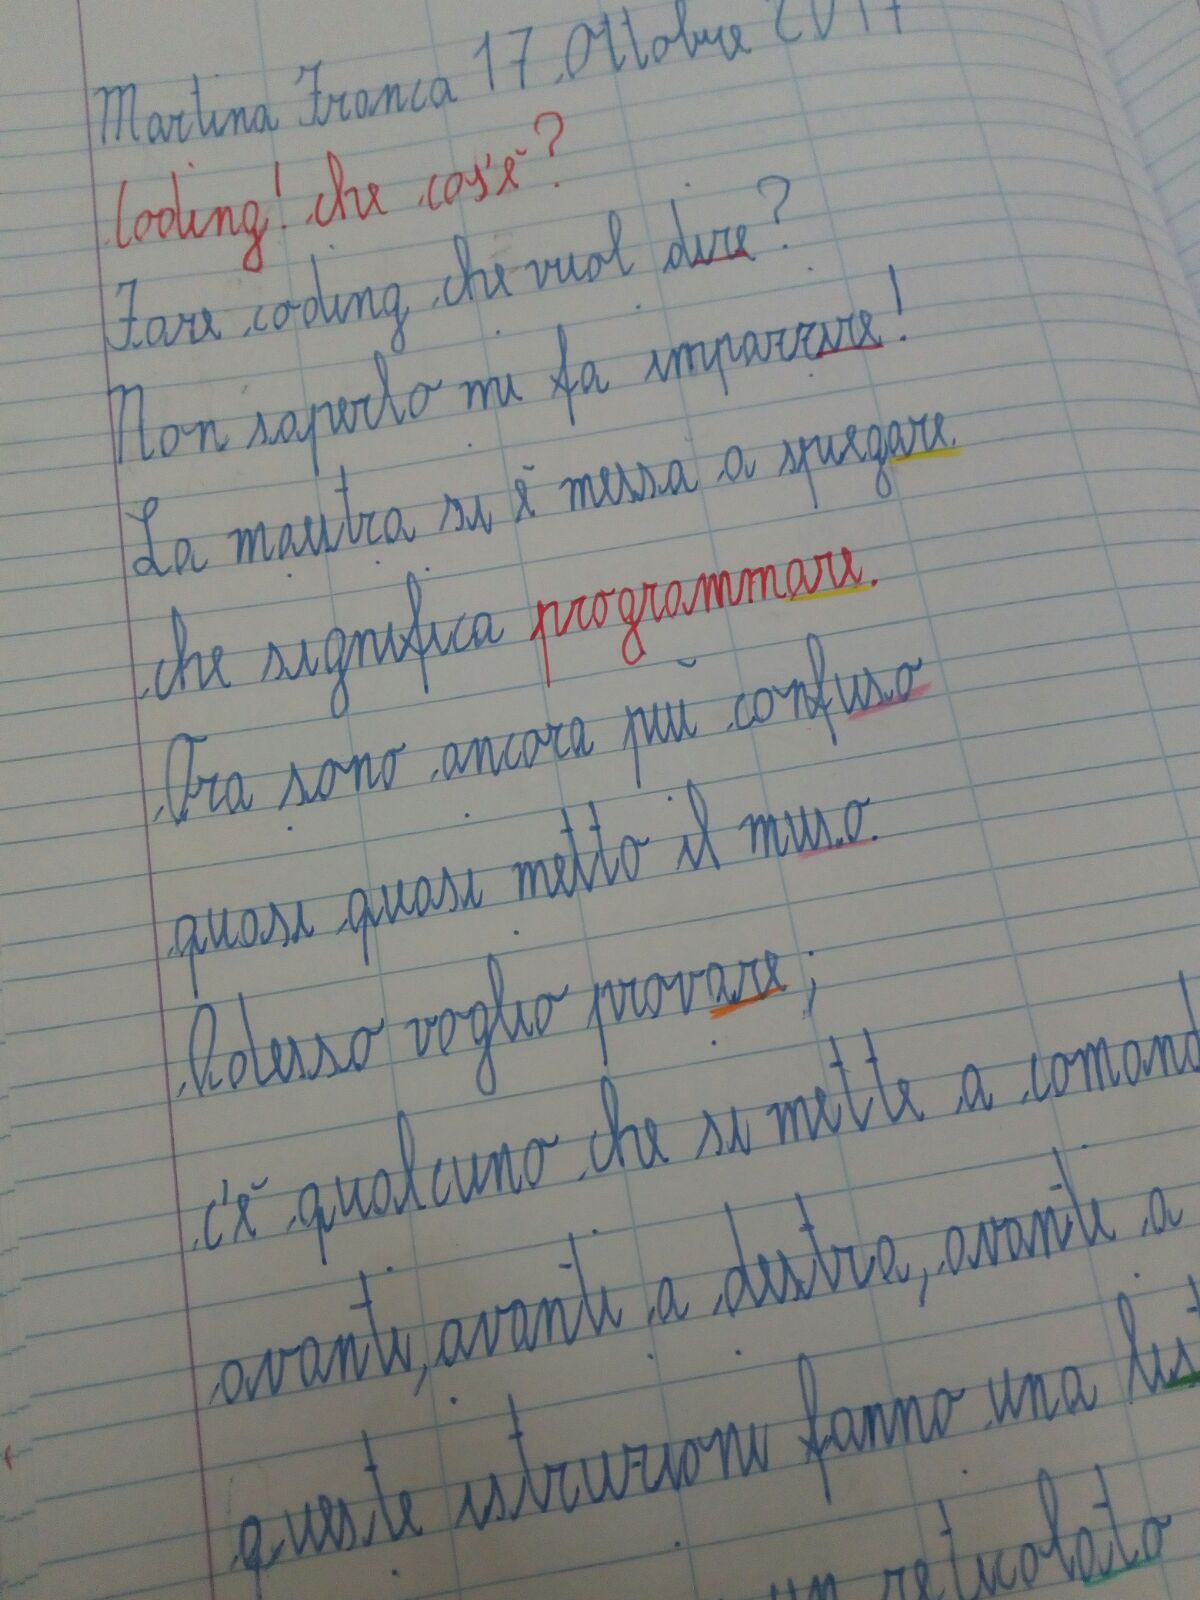 Martina Franca 17 Ottobre 2017
Coding! che cos'è?
Fare coding che vuol dire?
Non saperlo mi fa imparzire!
La maestra si è messa a spiegare
che significa programmare.
Ora sono ancora più confuso
quasi quasi metto il muso.
Adesso voglio provare;
c'è qualcuno che si mette a comand
avanti, avanti a destra, avanti a
queste istruzioni fanno una list
un reticolato